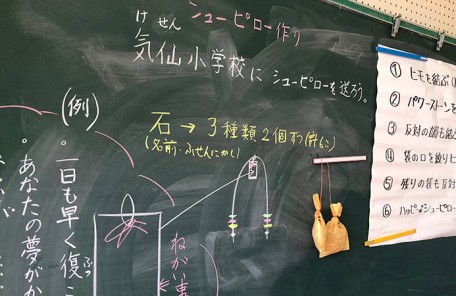 シューピロー作り
けせん
気仙小学校に シューピローを送ろう。
石→3種類2個ずつ
(名前・ふせんにかく)
(例)
。一日も早く復こ
ふっ
。あなたの夢がか
ねがい事
① ヒモを結ぶ
② パワーストーンを
③ 反対の
④ 袋の口を
⑤ 残りの袋も反対
⑥ ハッピーシューピロー